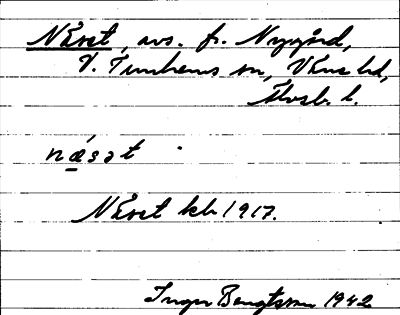 Näset, avs. fr. Nygård,
V. Tunhems sn, Väne hd,
Älvsb. l.
nǽ̱sət
Näset kb 1917.
Inger Bengtsson 1942